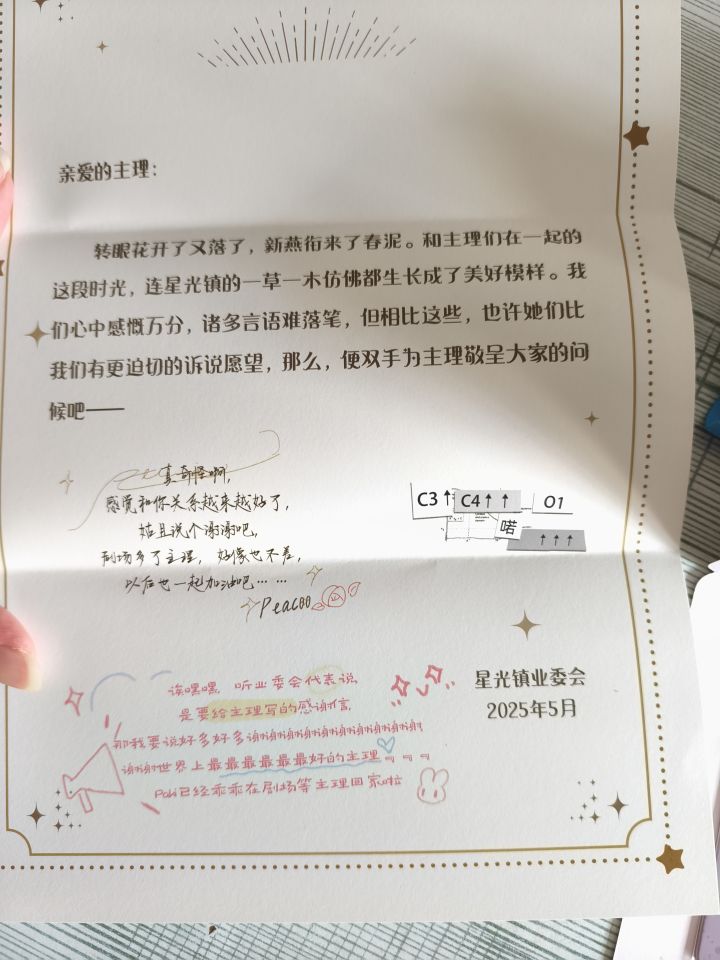 亲爱的主理：
转眼花开了又落了，新燕衔来了春泥。和主理们在一起的
这段时光，连星光镇的一草一木仿佛都生长成了美好模样。我
们心中感慨万分，诸多言语难落笔，但相比这些，也许她们比
我们有更迫切的诉说愿望，那么，便双手为主理敬呈大家的问
候吧——
真奇怪啊，
感觉和你关系越来越好了，
姑且说个谢谢吧，
剧场多了主理，好像也不差，
以后也一起加油吧……
Peacoo
C3↑ C4↑↑ O1
喏
↑↑↑
诶嘿嘿，听业委会代表说
是要给主理写的感谢信
那我要说好多好多谢谢谢谢谢谢谢谢谢谢谢谢谢谢
谢谢世界上最最最最最最好的主理~ ~ ~
Poki已经乖乖在剧场等主理回家啦
星光镇业委会
2025年5月